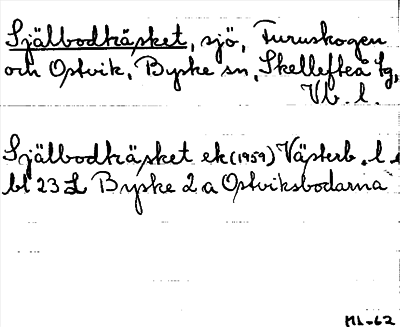 Själbodträsket, sjö, Furuskogen
och Ostvik, Byske sn, Skellefteå tg,
Vb. l.
Själbodträsket ek (1959) Västerb. l.
bl 23 L Byske 2 a Ostviksbodarna
ML-62